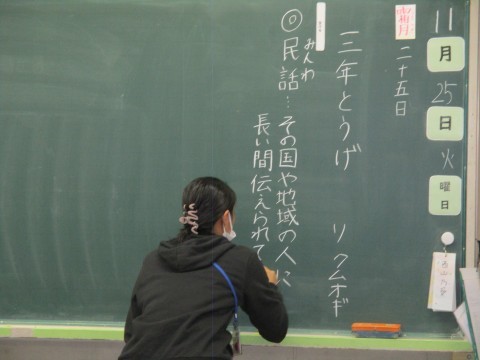 11月25日火曜日
霜月
二十五日
三年とうげ　リクムオギ
みんわ
◎民話…その国や地域の人に
長い間伝えられて